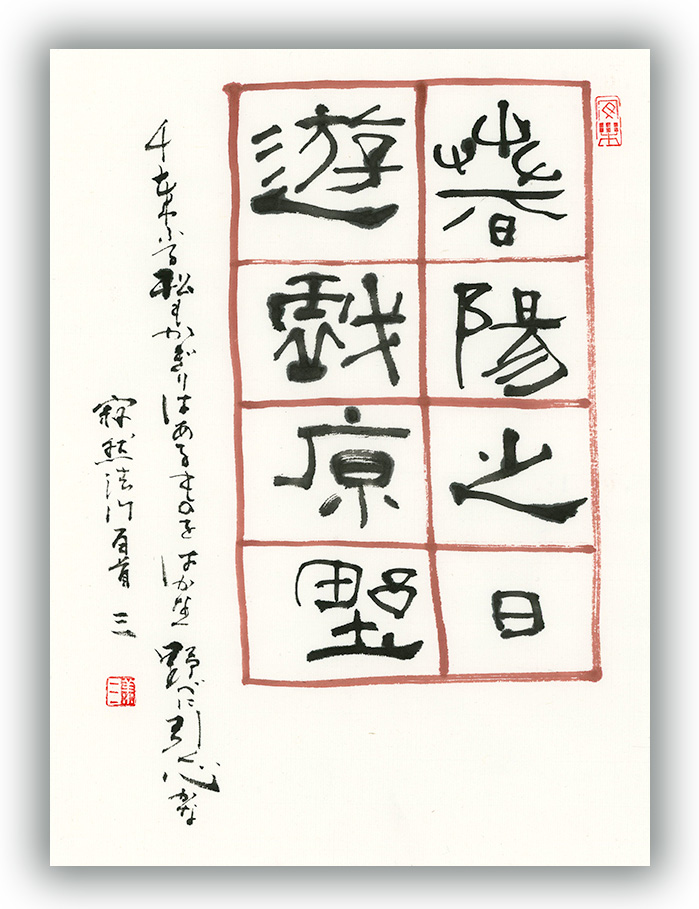 春陽之日
遊戯原野
千ふる松もかぎりはあるものをはか野べに引心かな
寂然法門百首 三